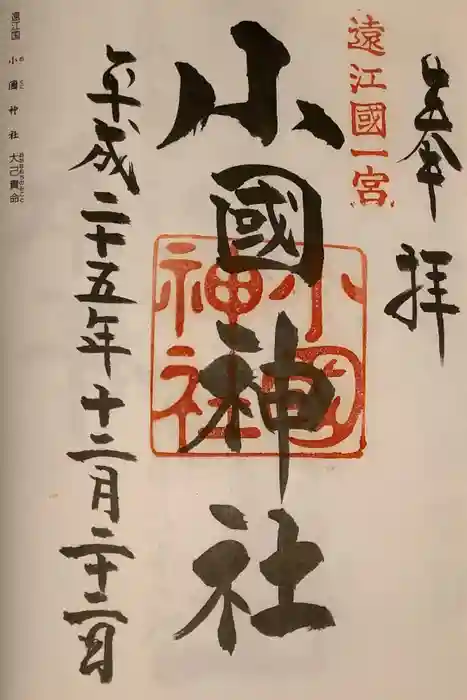 奉拝
遠江國一宮
小國神社
小國
神社
平成二十五年十二月二十二日
遠江国 小國神社 大己貴命